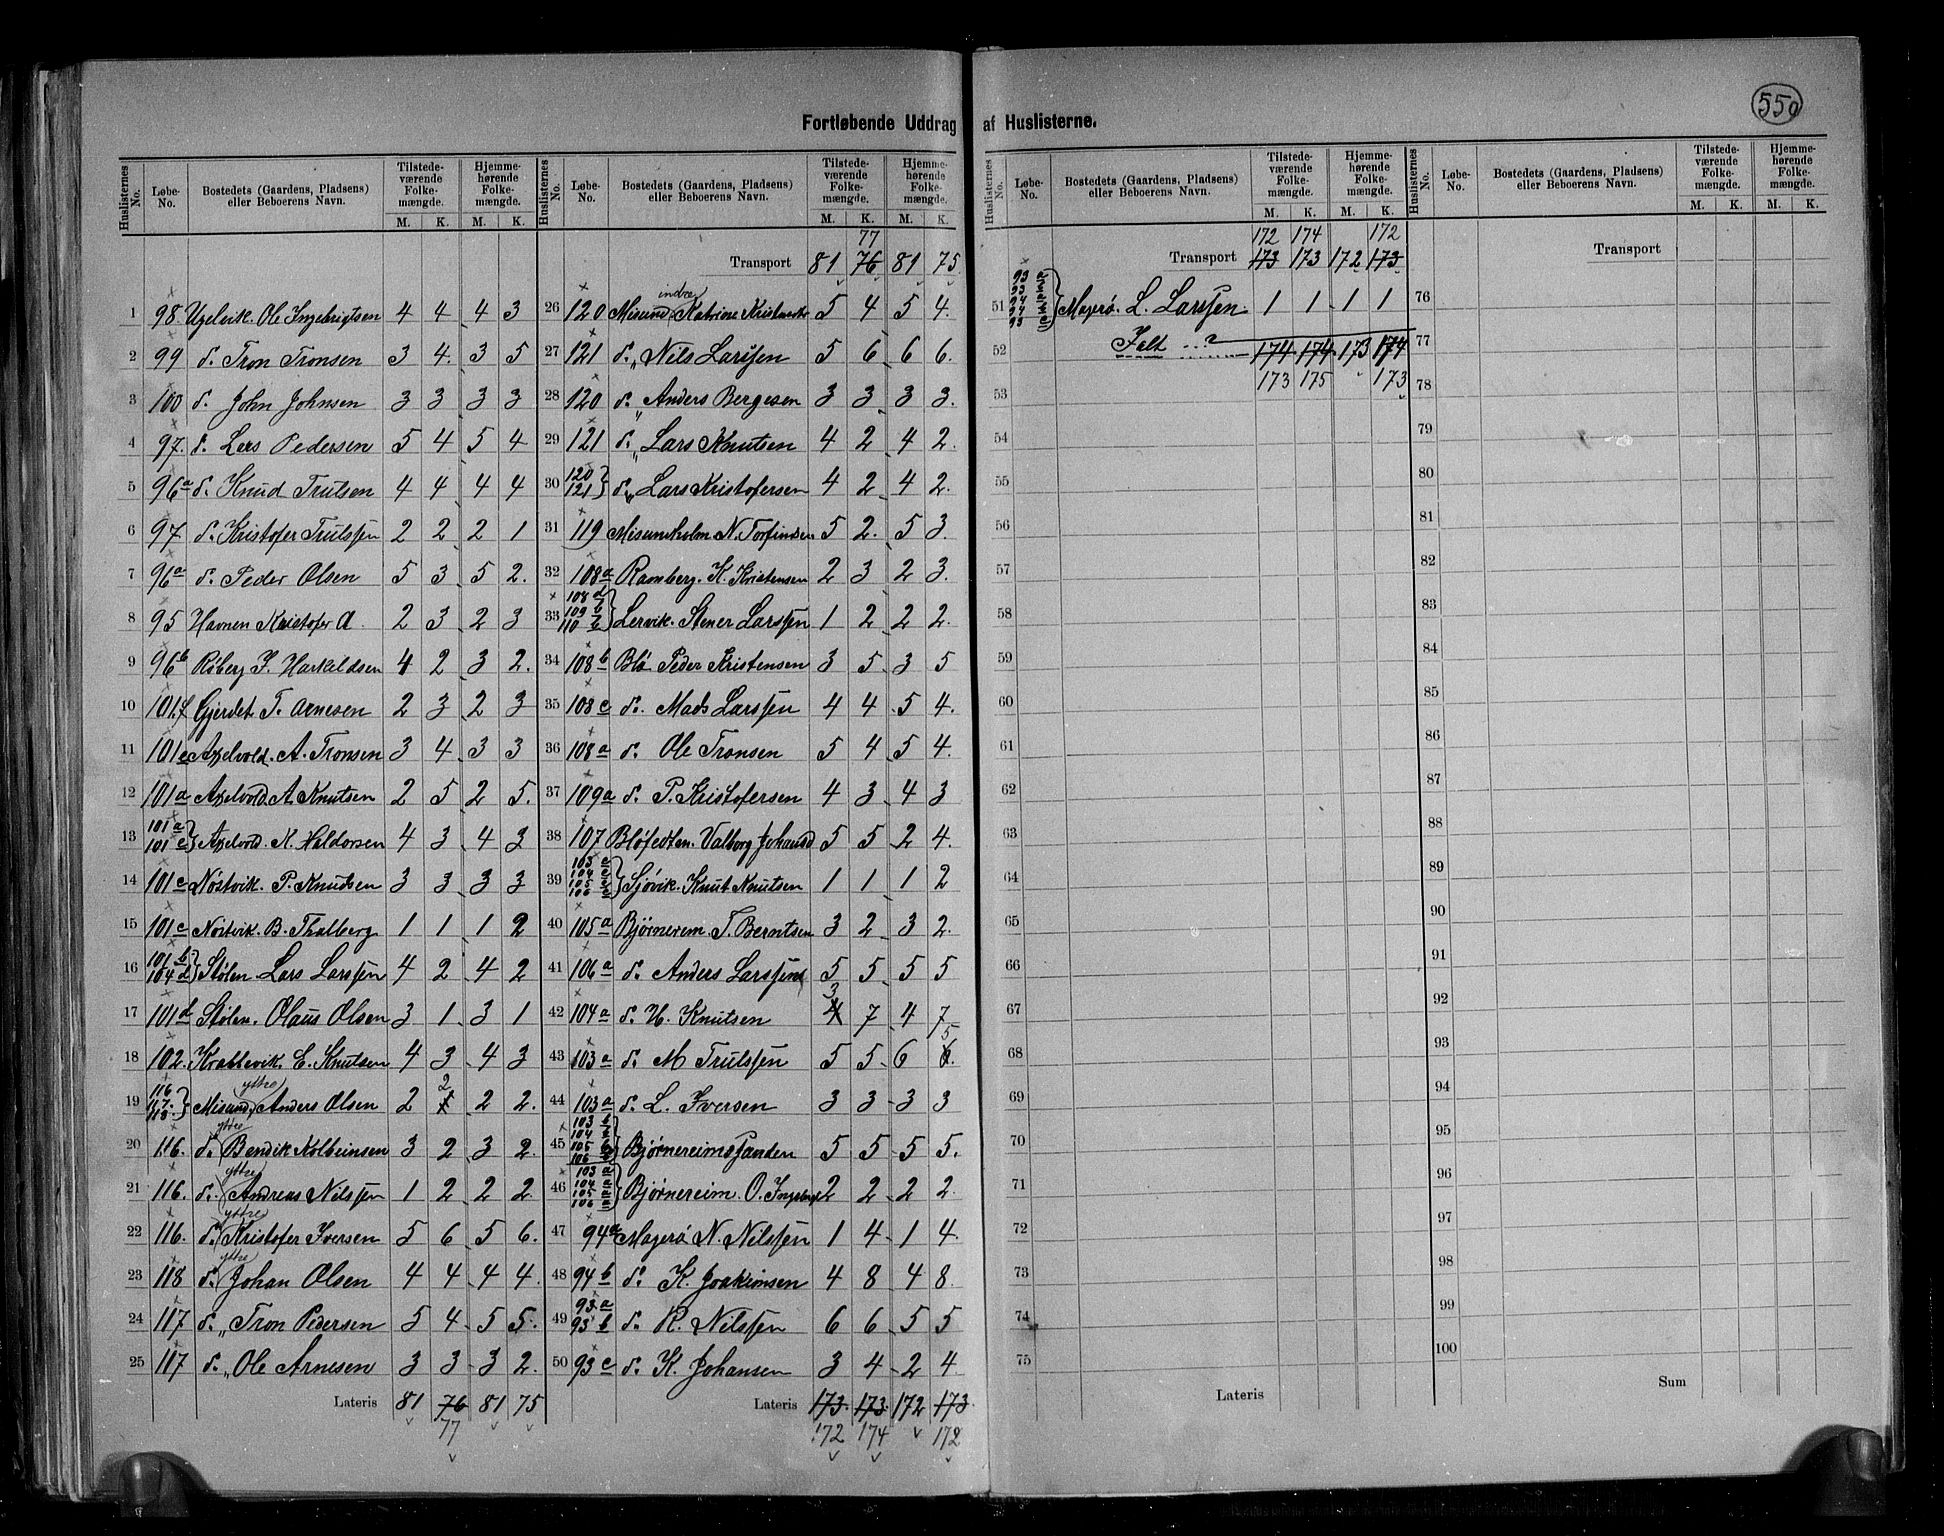 550
Fortløbende Uddrag af Huslisterne.
Huslisternes No. Løbe-No. Bostedets (Gaardens, Pladsens) eller Beboerens Navn. Tilstedeværende Folkemængde. M. K. Hjemmehørende Folkemængde. M. K.
1 98. Ugelvik Ole Ingebrigtsen 4 4 4 3
2 99 d. Tron Tronsen 3 4 3 5
3 100 d. John Johnsen 3 3 3 3
4 97. d. Lars Pedersen 5 4 5 4
5 96a d. Knud Trulsen 4 4 4 4
6 97 d. Kristofer Trulssen 2 2 2 1
7 96a d. Peder Olsen 5 3 5 2.
8 95 Havnen Kristofer A. 2 3 2 3
9 96b Røberg J. Harkildsen 4 2 3 2.
10 101.f Gjerdet T. Arnesen 2 3 2 3
11 101e Axelvold. A. Tronsen 3 4 3 3
12 101a Axelvold A Knutsen 2 5 2 5.
13 101a 101c Axelvold. K. Haldorsen 4 3 4 3
14 101c Nøstvik. P. Knudsen 3 3 3 3
15 101c Nøstvik. B. Thalberg 1 1 1 2
16 101b 104d Stølen Lars Larssen 4 2 4 2
17 101d Stølen. Olaus Olsen 3 1 3 1
18 102. Krabbevik. E. Knutsen 4 3 4 3
19 116 117. 118. Misund, ytre Anders Olsen 2 2 2 2.
20 116. d. ytre Bendik Kolbeinsen 3 2 3 2.
21 116. d. ytre Andreas Nilssen 1 2 2 2
22 116. d. ytre Kristofer Iversen 5 6 5 6.
23 118 d. ytre Johan Olsen 4 4 4 4.
24 117 d. " Tron Pedersen 5 4 5 5.
25 117 d. " Ole Arnesen 3 3 3 2.
Lateris 81 76 81 75
77
77
Transport 81 76 81 75
26 120 Misund indre Katrine 5 4 5 4.
27 121 d. " Nils Larssen 5 6 6 6.
28 120 d. " Anders Bergesen 3 3 3 3.
29 121 d. " Lars Knutsen 4 2 4 2.
30 120 121 d. " Lars Kristofersen 4 2 4 2.
31 119 Misundholm N. Torfindsen 5 2. 5 3.
32 108a Ramberg. K. Kristensen 2 3 2 3.
33 108d 109b 110b Lervik. Stener Larssen 1 2 2 2.
34 108b Blø Peder Kristensen 3 5 3 5
35 108c d. Mads Larssen 4 4 5 4.
36 108a d. Ole Tronsen 5 4 5 4.
37 109a d. P. Kristofersen 4 3 4 3
38 107 Valborg 5 5 2 4.
39 103c 104c 105c 106c Sjøvik. Knut Knutsen 1 1 1 2
40 105a Bjørnerem. T. Berntsen 3 2 3 2.
41 106a d. Anders Larssen 5 5 5 5
42 104a d. H. Knutsen 3 7 4 7
43 103a d. M Trulssen 5 5 6 5
44 103a d. L. Iversen 3 3 3 3
45 103b 104b 105b 106b Bjørnereimssanden 5 5 5 5.
46 103a 104a 105a 106a Bjørnereim. O. 2 2 2 2.
47 94a Magerø N. Nilssen 1 4 1 4.
48 94b d. K. Joakimsen 4 8 4 8.
49 93a 93b d. R. Nilssen 6 6 5 5
50 93c d. K. Johansen 3 4 2 4
Lateris 173. 173. 172 173.
172 174 172
172 174 172
Transport 173 173 172 173
51 Magerø. L. Larssen 1 1 1 1
52 Falt 174 174 173 174
173 175 173
53
54
55
56
57
58
59
60
61
62
63
64
65
66
67
68
69
70
71
72
73
74
75
Lateris
Transport
76
77
78
79
80
81
82
83
84
85
86
87
88
89
90
91
92
93
94
95
96
97
98
99
100
Sum